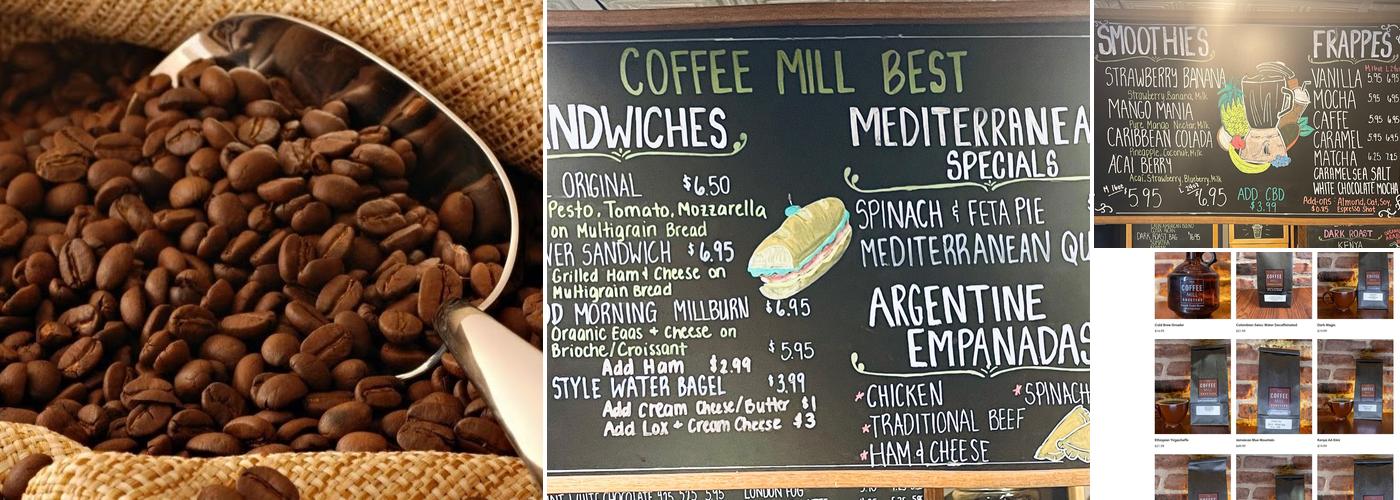 COFFEE MILL BEST
NDWICHES
ORIGINAL $6.50
Pesto, Tomato, Mozzarella
on Multigrain Bread
SANDWICH $6.95
Grilled Ham & Cheese on
Multigrain Bread
MORNING MILLBURN $6.95
Organic Eggs + Cheese on
Brioche/Croissant $5.95
Add Ham $2.99
STYLE WATER BAGEL $3.99
Add Cream Cheese/Butter $1
Add Lox + Cream Cheese $3
MEDITERRANEA
SPECIALS
SPINACH & FETA PIE
MEDITERRANEAN QU
ARGENTINE
EMPANADAS
*CHICKEN
*SPINACH
*TRADITIONAL BEEF
*HAM & CHEESE
WHITE CHOCOLATE 4.95 5.75 5.95
LONDON FOG
SMOOTHIES
STRAWBERRY BANANA
Strawberry, Banana, Milk
MANGO MANIA
Pure Mango Nectar, Milk
CARIBBEAN COLADA
Pineapple, Coconut, Milk
ACAI BERRY
Acai, Strawberry, Blueberry, Milk
$5.95
$6.95
ADD CBD
$3.99
FRAPPES
VANILLA 5.95 6.95
MOCHA 5.95 6.95
CAFFE 5.95 6.95
CARAMEL 5.95 6.95
MATCHA 6.25
CARAMEL SEA SALT
WHITE CHOCOLATE MOCHA
Add-ons: Almond, Oat, Soy,
$0.75 Espresso Shot
DARK ROAST BAG
DARK ROAST
KENYA
COFFEE
MILL
Cold Brew Growler
Colombian Swiss Water Decaffeinated
Dark Magic
Ethiopian Yirgacheffe
Jamaican Blue Mountain
Kenya AA Kiru